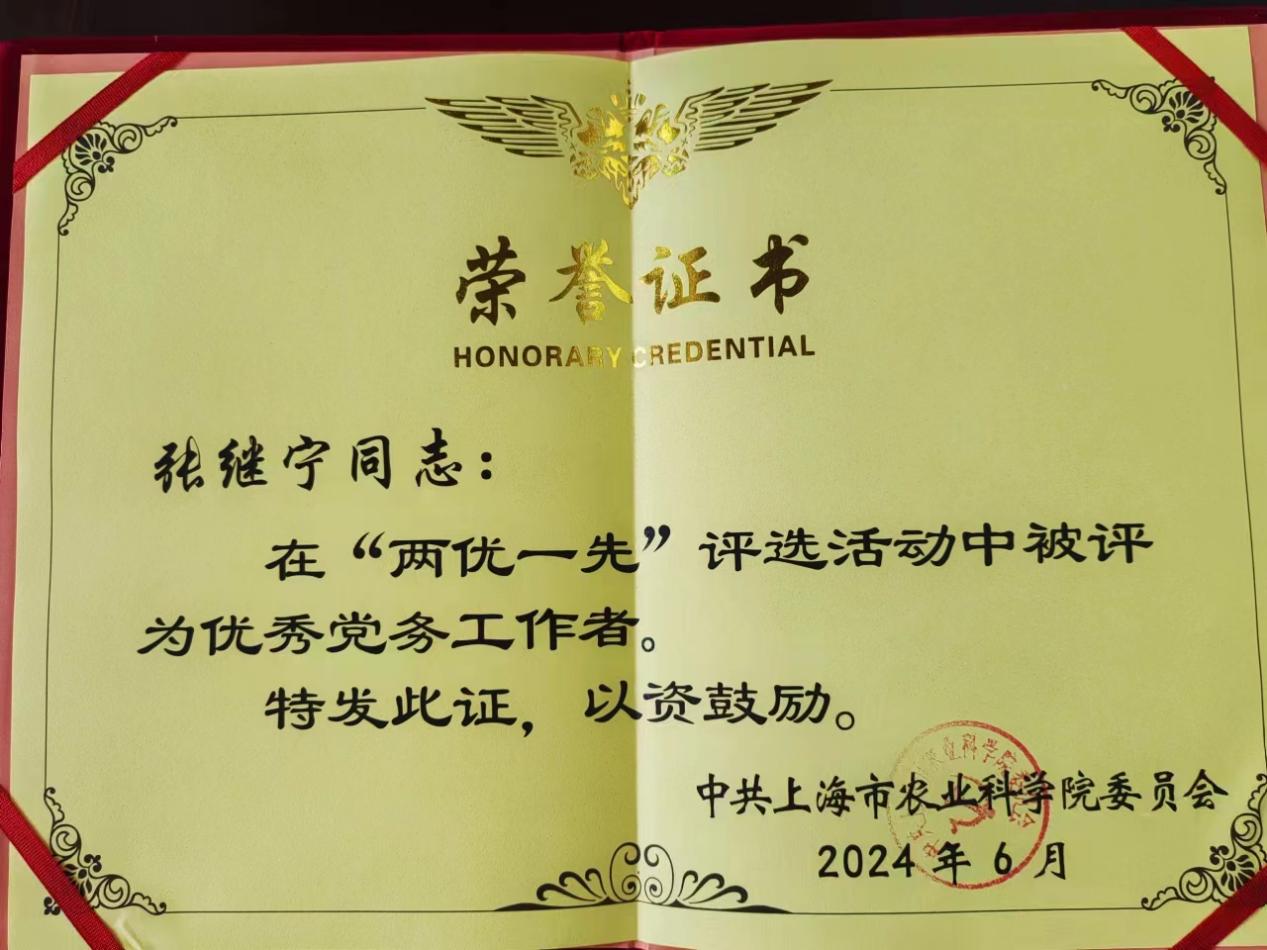 荣誉证书
HONORARY CREDENTIAL
张继宁同志：
在“两优一先”评选活动中被评
为优秀党务工作者。
特发此证，以资鼓励。
中共上海市农业科学院委员会
2024年6月